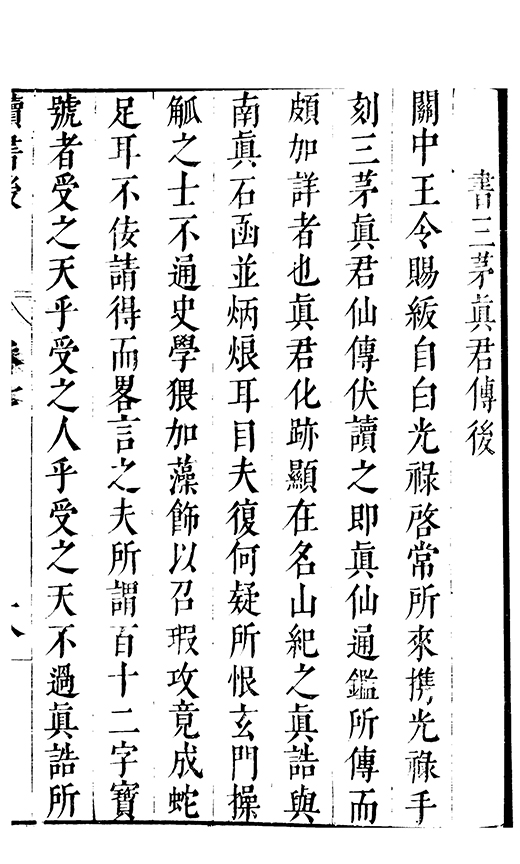 書三茅眞君傳後
關中王令賜紱自白光祿啓常所來携光祿手
刻三茅眞君仙傳伏讀之即眞仙通鑑所傳而
頗加詳者也眞君化跡顯在名山紀之眞誥與
南眞石函並炳烺耳目夫復何疑所恨玄門操
觚之士不通史學猥加藻飾以召瑕攻竟成蛇
足耳不佞請得而畧言之夫所謂百十二字寶
號者受之天乎受之人乎受之天不過眞誥所
讀書後
八